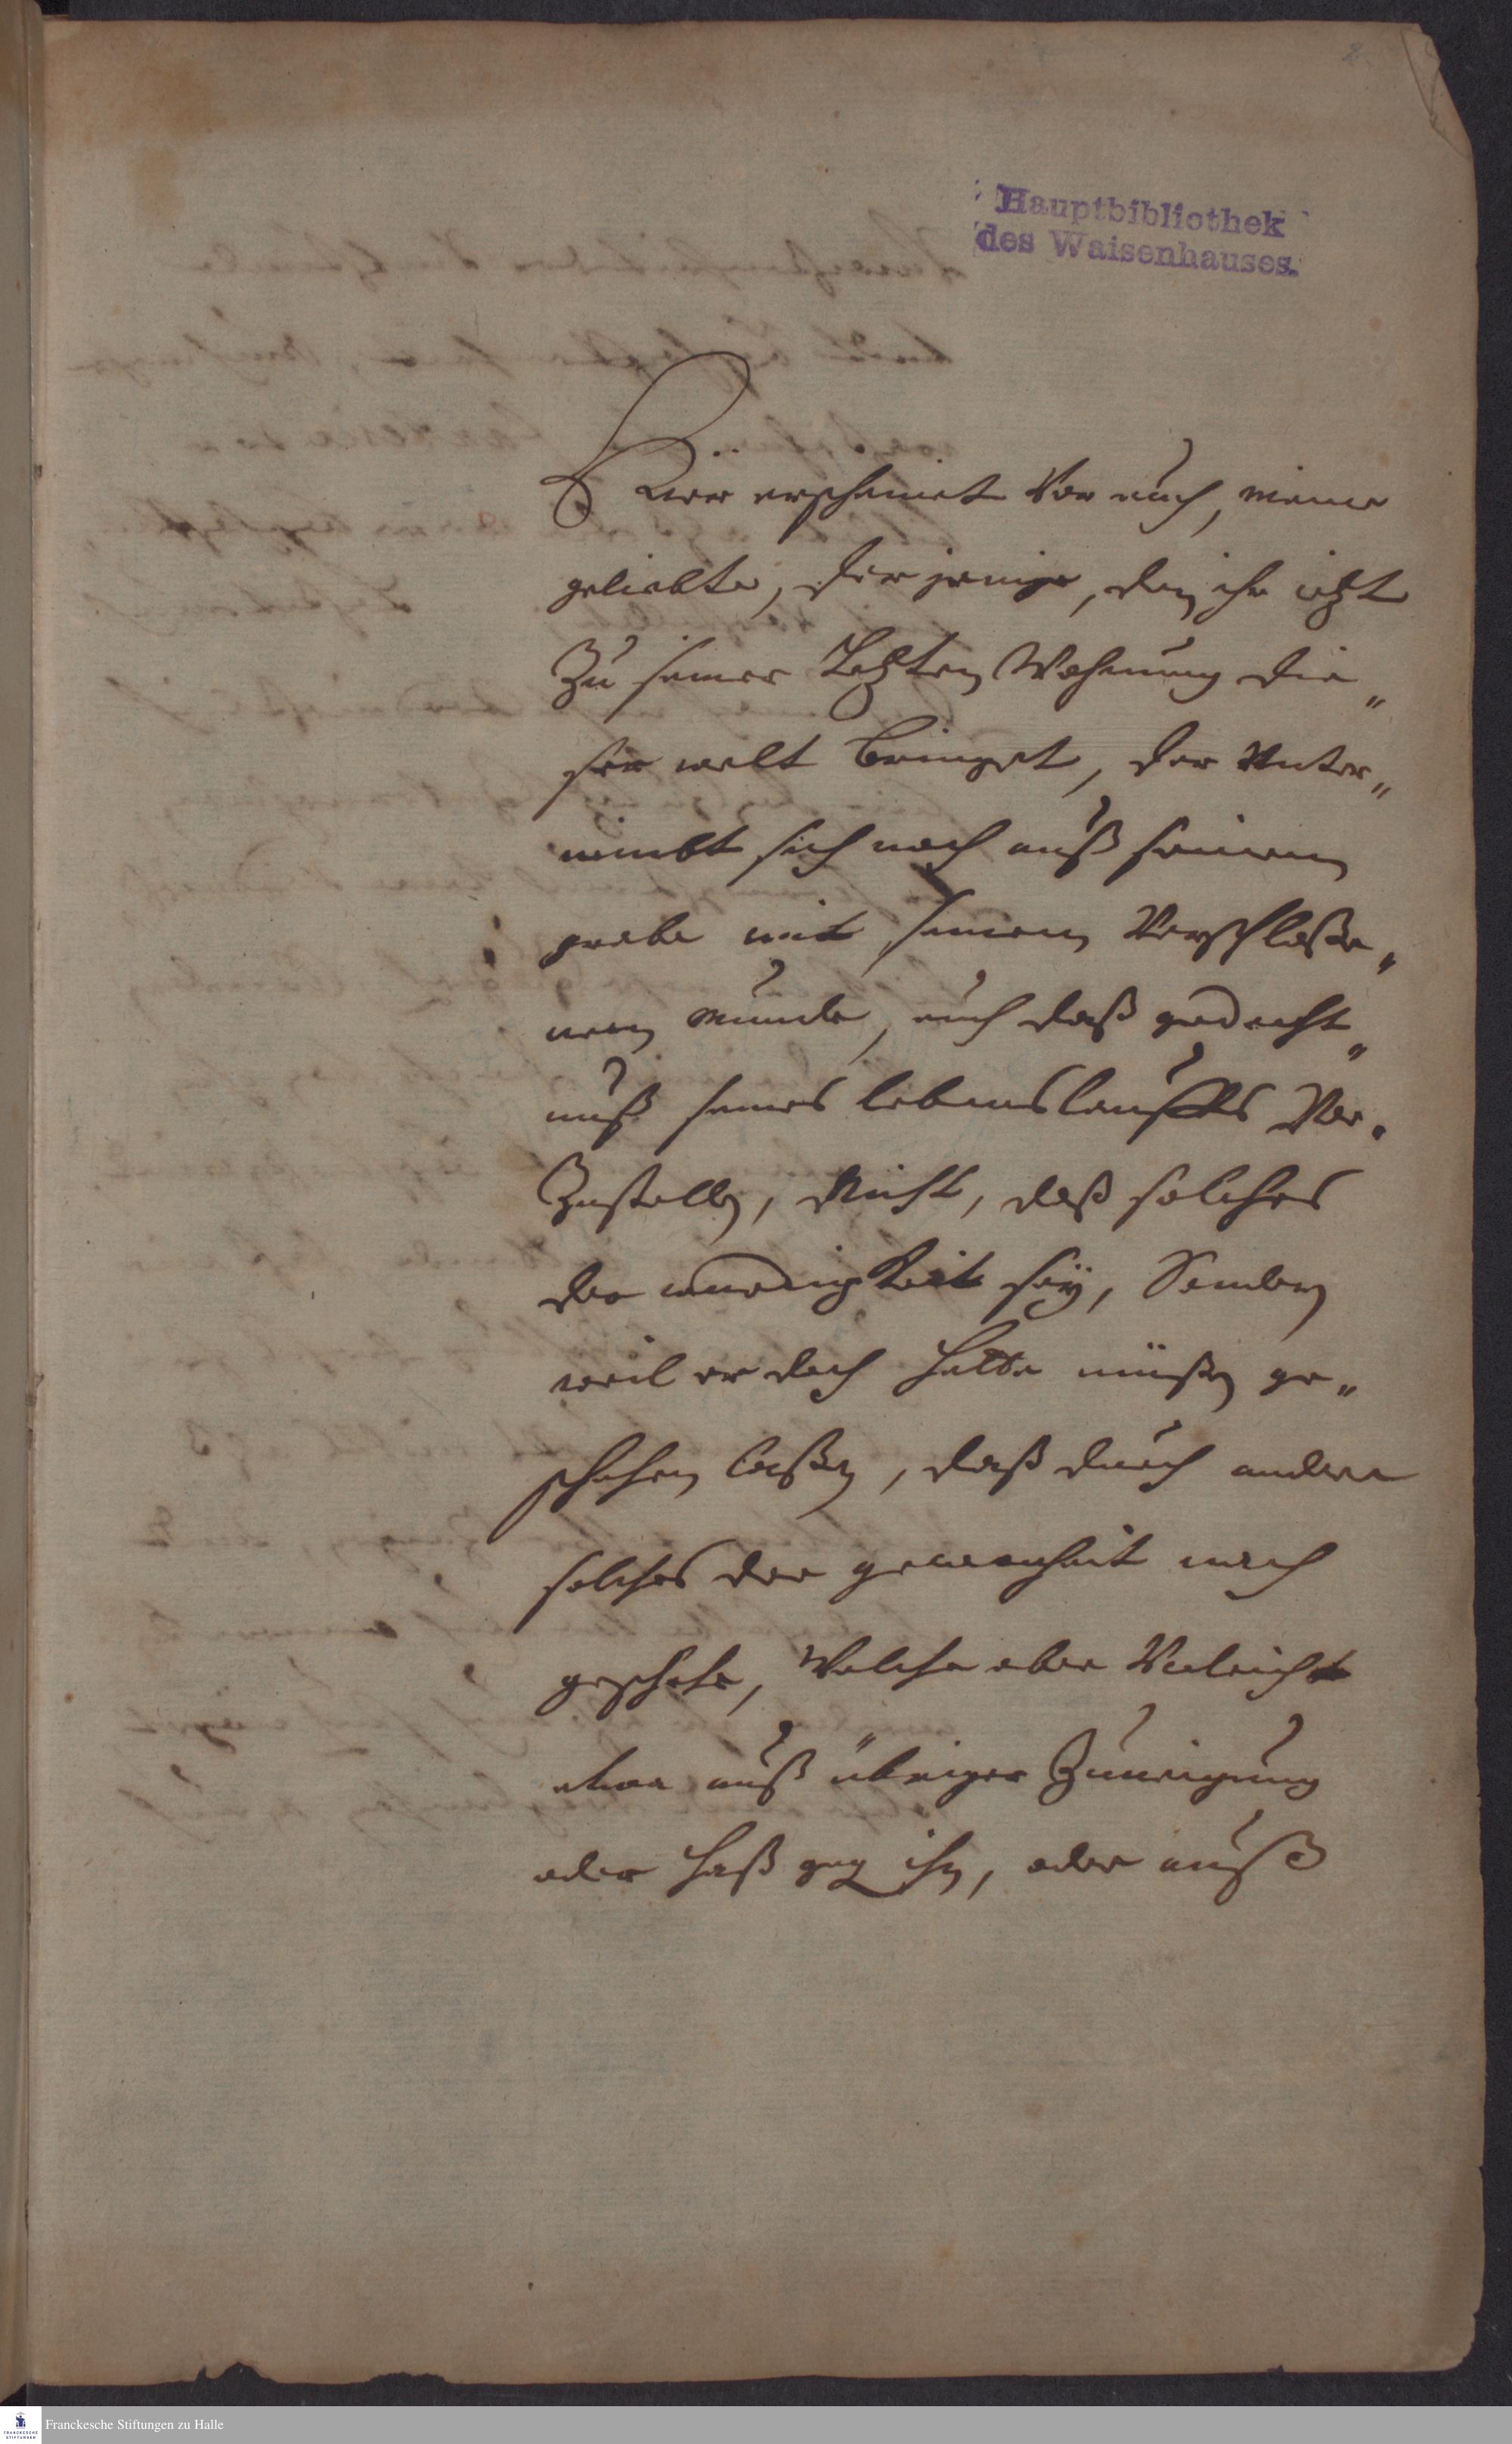 2.
Hauptbibliothek
des Waisenhauses.
Hier erscheinet Vor euch, meine
geliebte, der jenige, den ihr ietzt
Zu seiner Letzten Wohnung die„
ser welt bringet, der Unter„
nimbt sich noch auß seinem
grabe mit seinem Verschloße„
nen munde, euch daß gedecht„
nuß seines lebenslauffes Vor„
Zustellen, Nicht, daß solches
der würdigkeit sey, Sondern
weil er doch hette müßen ge„
schehen laßen, daß durch andere
solches der gewonheit nach
geschehe, Welche aber Vieleicht
etwa auß übriger Zuneigung
oder haß gegen ihn, oder auß
Franckesche Stiftungen zu Halle